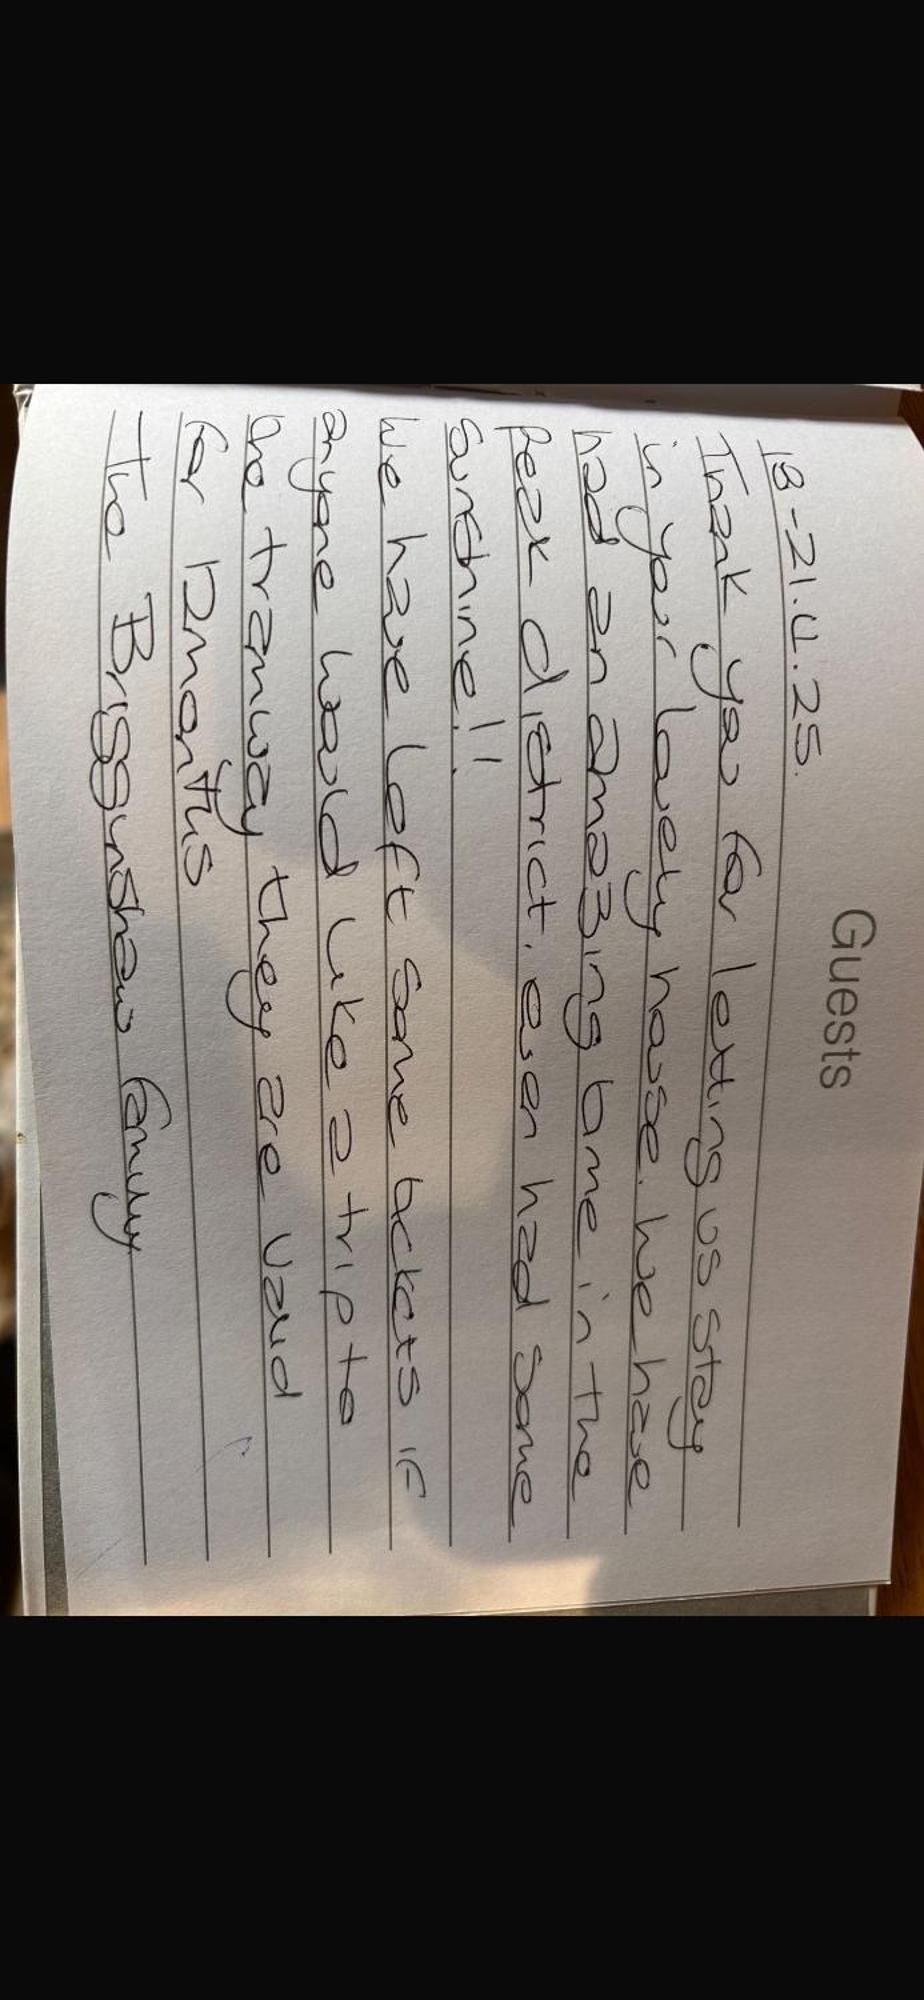 Guests
18-21.4.25.
Thank you for letting us stay
in your lovely house. We have
had an amazing time in the
peak district, even had some
sunshine!!
We have left some tickets if
anyone would like a trip to
the tramway they are valid
for 12months
The Bigginshaw family